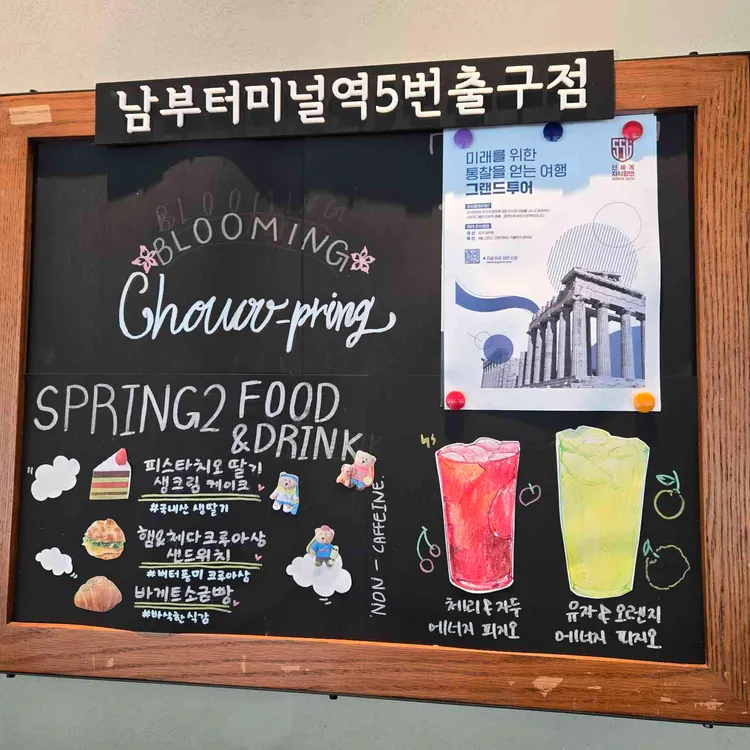 남부터미널역5번출구점
BLOOMING
Chouvv-pring
미래를 위한
통찰을 얻는 여행
그랜드투어
신세계
지식향연
SPRING2 FOOD
&DRINK
피스타치오 딸기
생크림 케이크
#국내산 생딸기
햄&체다크로아상
샌드위치
#버터풍미 크로아상
바게트소금빵
#바삭한식감
NON-CAFFEINE
체리&자두
에너지 피지오
유자&오렌지
에너지 피지오